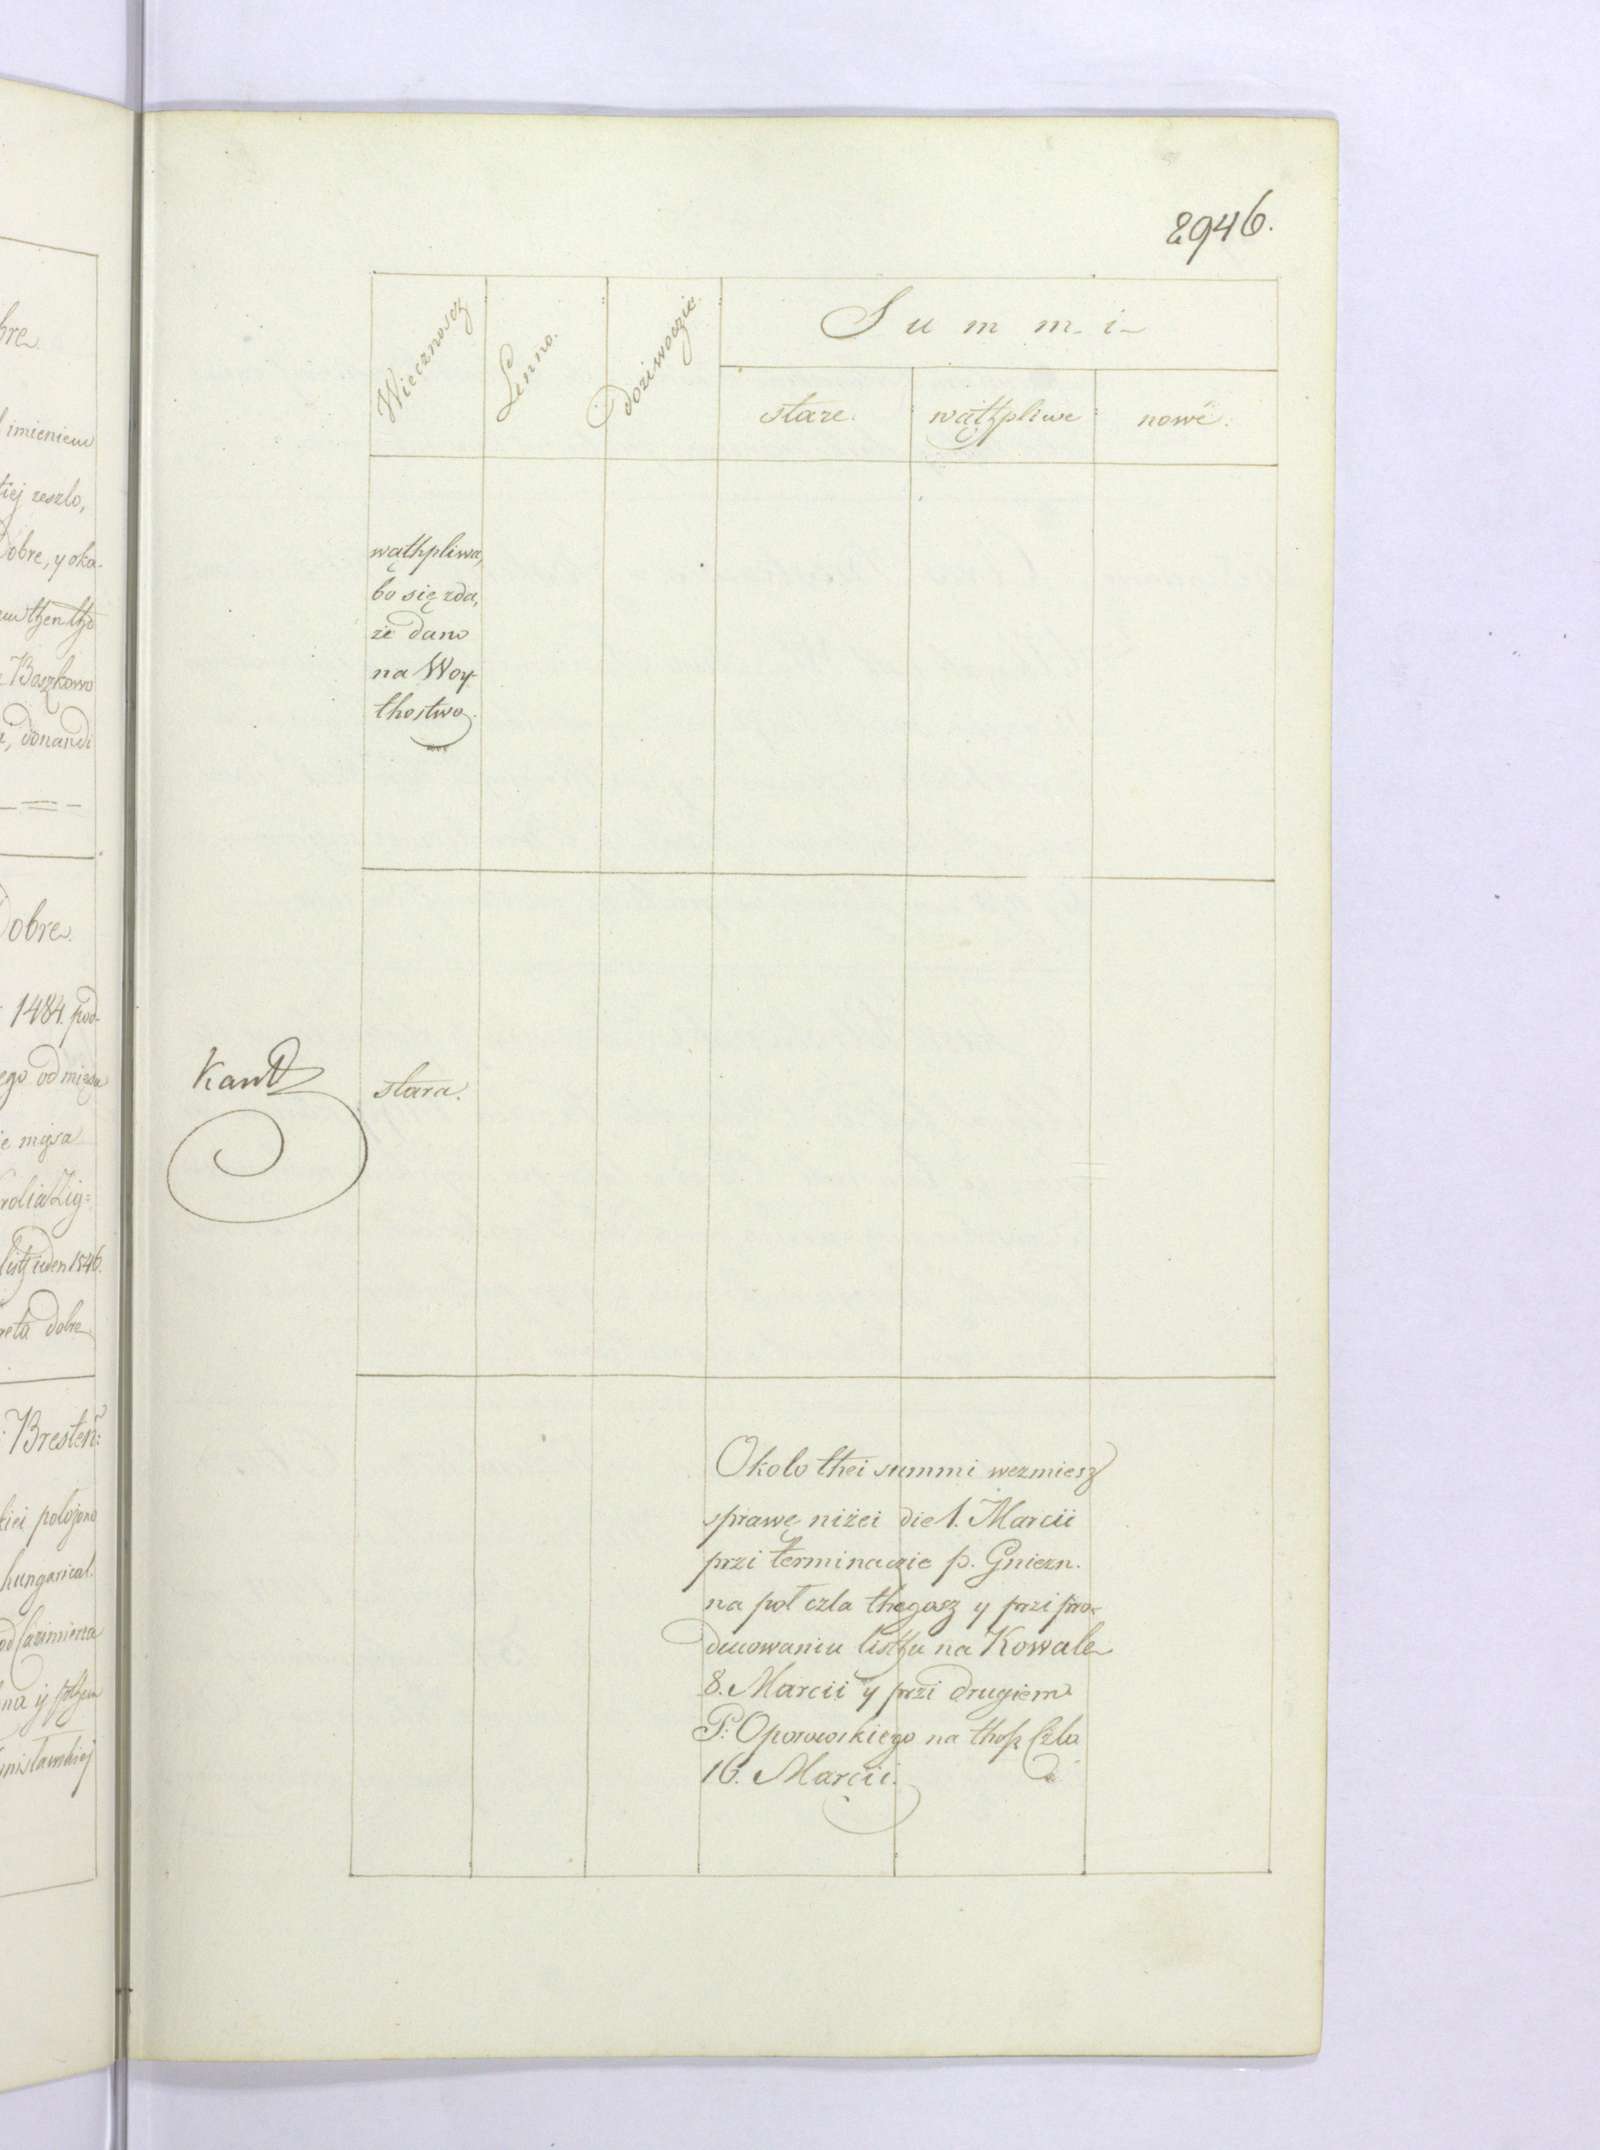 bre
imieniem
tiej zeszlo,
Dobre, y oka-
Baszkowo
donandi
Dobre.
1484. pod-
ego od mięsa
ie mięsa
rolia Zig=
listz ieden 1546.
reta dobre
Bresteń:
kiei polozono
hungarical.
od Cazimierza
na ÿ potzem
2946.
Wiecznoscz
Lenno.
Doziwoczie.
Summi
stare.
wątzpliwe
nowe.
wąthpliwa,
bo się zda,
ze dano
na Woy-
thostwo.
Kant
stara.
Okolo thei summi wezmiesz
sprawę niżei die 1. Marcii
przi terminaczie p. Gniezn.
na poł czla thegosz y przi pro-
ducowaniu listzu na Kowale
8. Marcii y przi drugiem
P: Oporowskiego na thosz Czlo
16. Marcii.